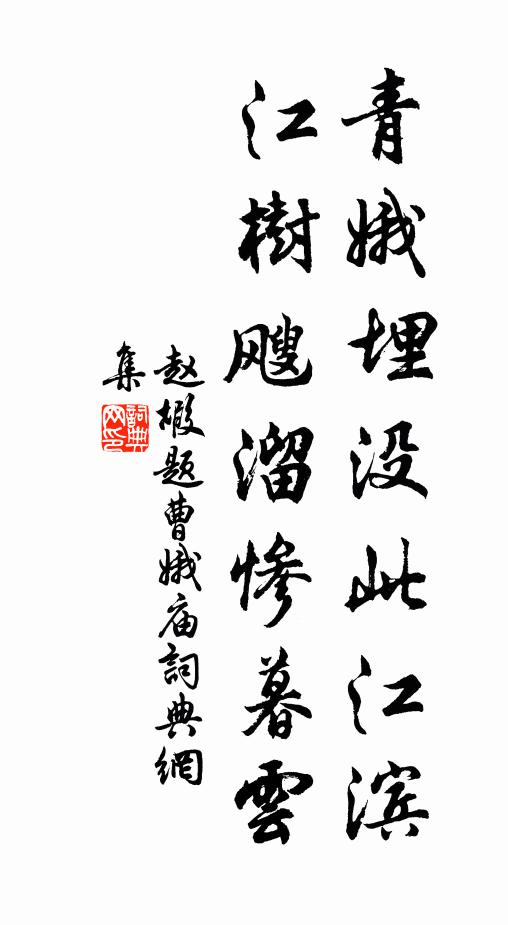 青娥埋没此江滨
江樹飕溜慘暮雲
赵嘏题曹娥庙詞典網
集
詞典网印